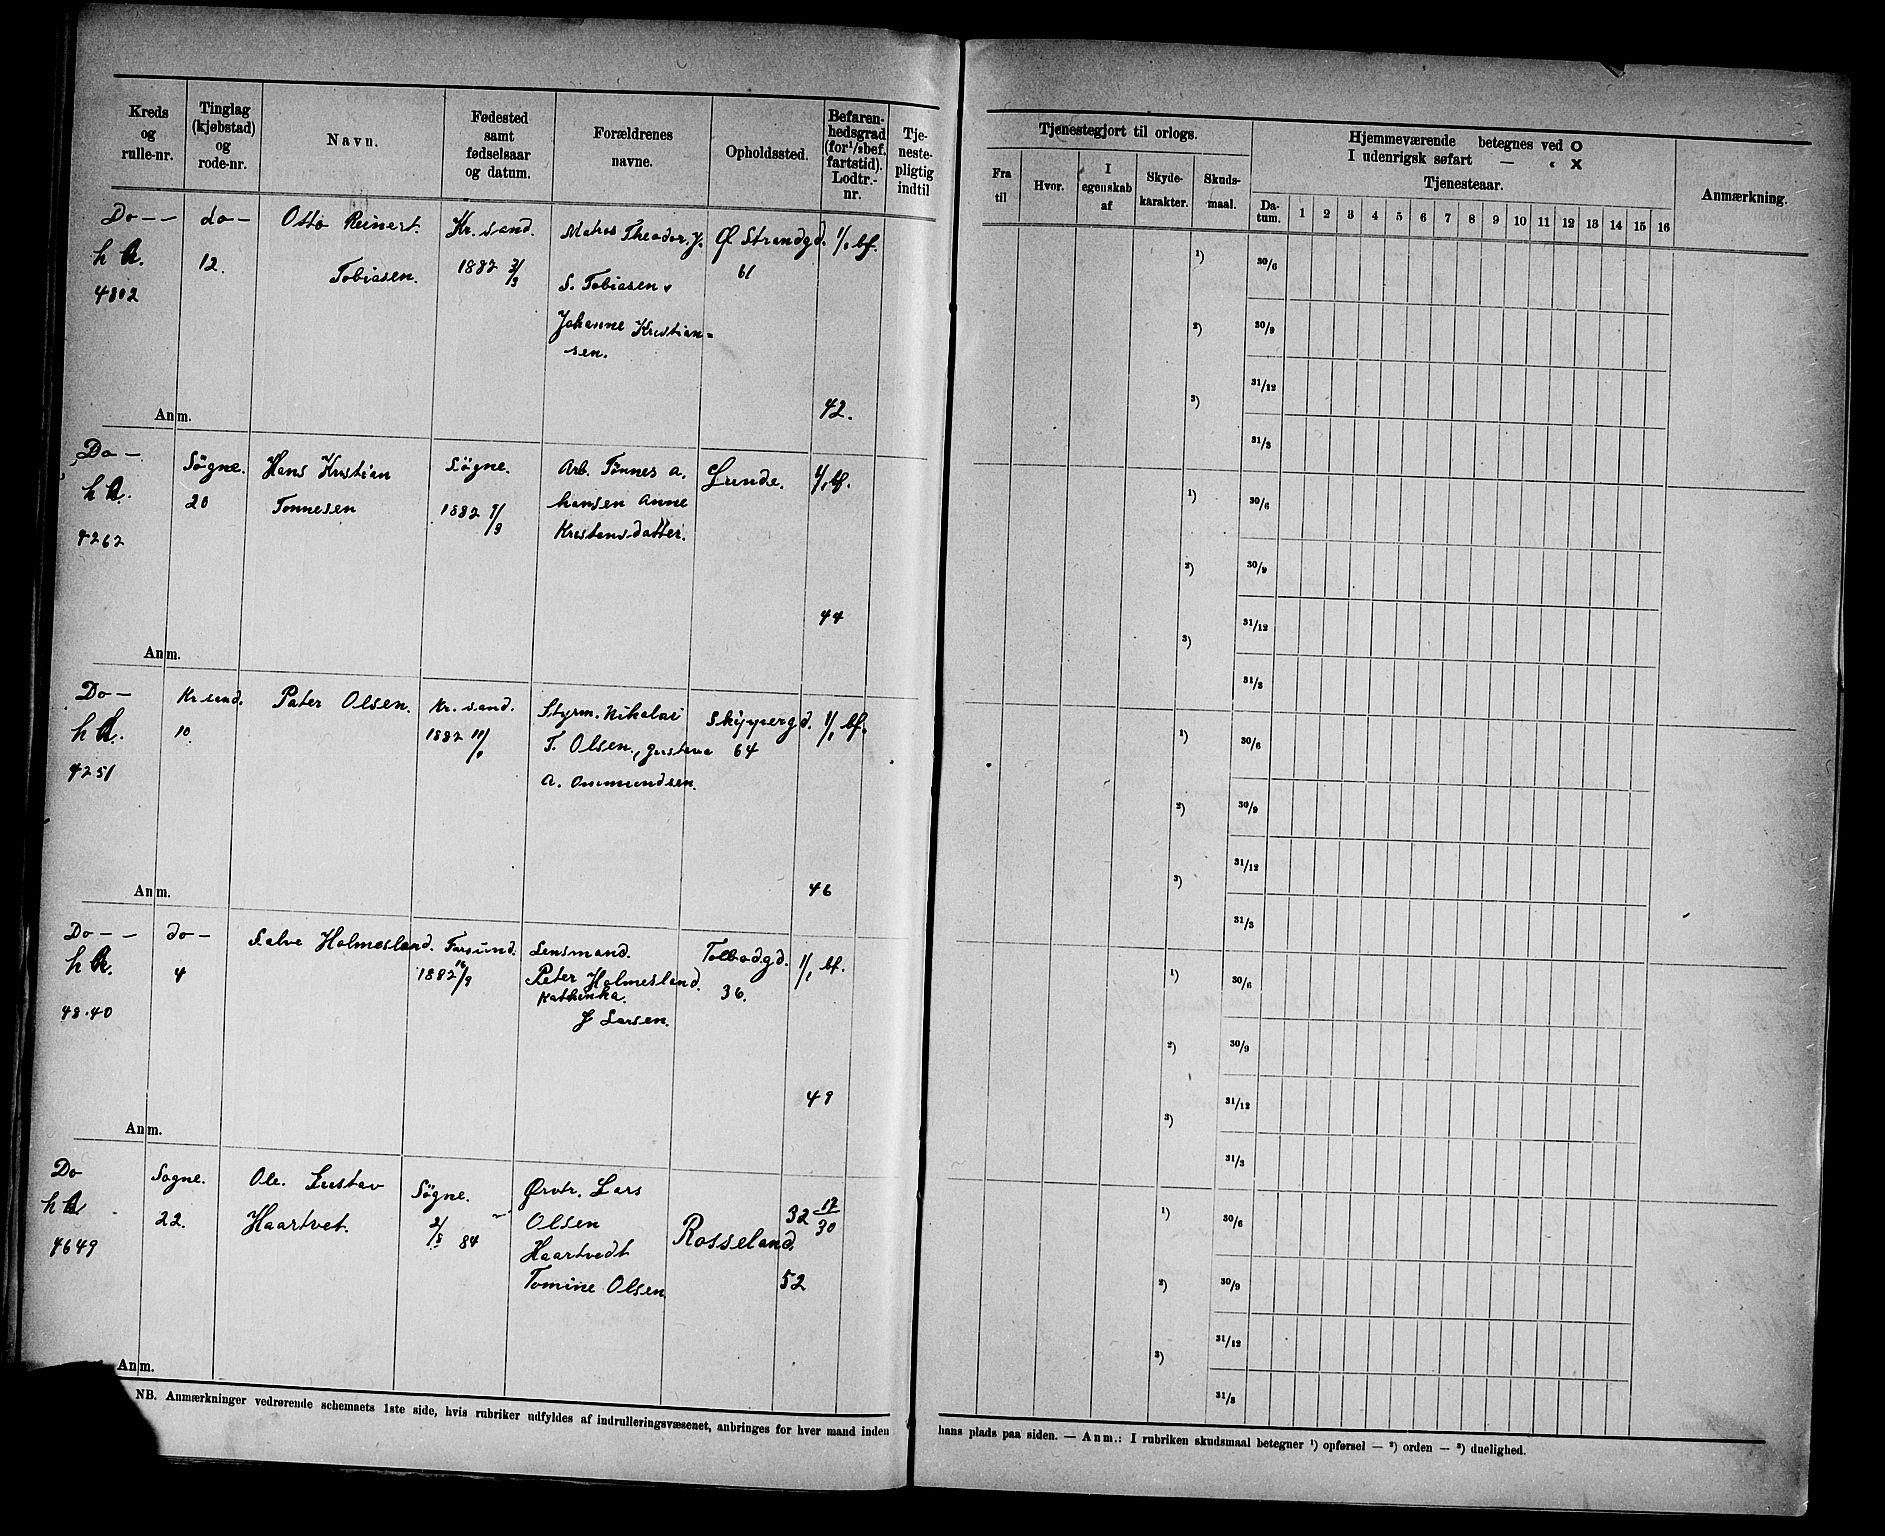 Kreds og rulle-nr.
Tinglag (kjøbstad) og rode-nr.
Navn.
Fødested samt fødselsaar og datum.
Forældrenes navne.
Opholdssted.
Befaren-hedsgrad (for 1/2 bef. fartstid). Lodtr.-nr.
Tje-neste-pligtig indtil
Tjenestegjort til orlogs.
Fra til
Hvor.
I egenskab af
Skyde-karakter.
Skuds-maal.
Hjemmeværende betegnes ved O
I udenrigsk søfart — « X
Tjenesteaar.
Da-tum.
1 2 3 4 5 6 7 8 9 10 11 12 13 14 15 16
Anmærkning.
Do - -
4802
do -
12.
Otto Reinert.
Tobiasen.
Kr. sand.
1882 2/3
Matros Theodor. J.
S. Tobiasen
Johanne Kristian=
sen.
Ø. Strandgd.
61
1/1 bf.
42.
Anm.
1) 30/6
2) 30/9
3) 31/12
31/3
Do -
4262
Søgne.
20
Hans Kristian
Tønnesen
Søgne.
1882 9/9
Arb. Tønnes A.
hansen Anne
Kristensdatter.
Lunde.
1/1 bf.
44
Anm.
1) 30/6
2) 30/9
3) 31/12
31/3
Do -
4251
Kr sand.
10
Peter Olsen.
Kr. sand.
1882
Styrm. Nikolai
T. Olsen, Gustava
A. Ommundsen.
Skippergd.
64
1/1 bf.
46
Anm.
1) 30/6
2) 30/9
3) 31/12
31/3
Do - -
48.40
do -
4
Salve Holmesland.
Farsund.
1882 16/9
Lensmand.
Peter Holmesland.
Kathinka.
J Larsen.
Tolbodgd.
36.
1/1 bf.
49
Anm.
1) 30/6
2) 30/9
3) 31/12
31/3
Do
4649
Søgne.
22.
Ole. Gustav
Haartvet.
Søgne.
2/8 84
Ørvtr. Lars
Olsen
Haartvedt
Tomine Olsen
Rosseland.
32 17/30
52
Anm.
1) 30/6
2) 30/9
3) 31/12
31/3
NB. Anmærkninger vedrørende schemaets 1ste side, hvis rubriker udfyldes af indrulleringsvæsenet, anbringes for hver mand inden
hans plads paa siden. — Anm.: I rubriken skudsmaal betegner 1) opførsel — 2) orden — 3) duelighed.